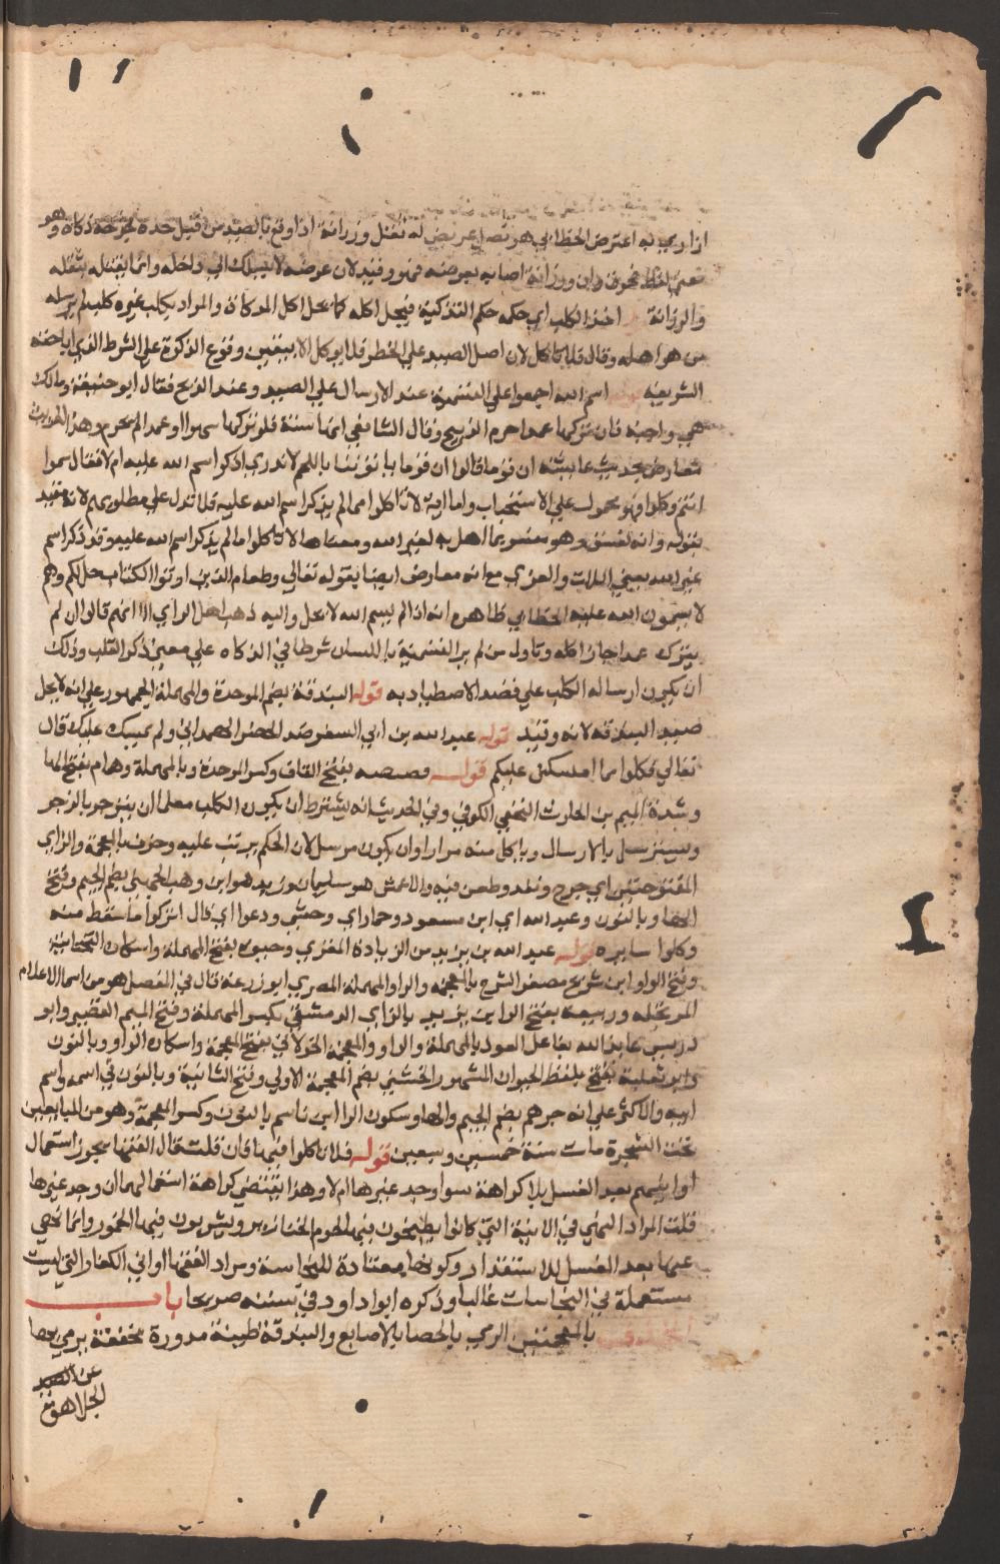 اذا رمي به اعترض الخطابي هو نصل عريض له ثقل ورزانة اذا وقع بالصيد من قبل حده فجرحه ذكاه وهو
معني لفظ فخرق وان اصابه بعرضه فهو وقيذ لان عرضه لا يسلك الي داخله وانما يقتله بثقله
والرزانة اخذ الكلب اي حكمه حكم التذكية فيحل اكله كما يحل اكل المذكاة والمراد بكلب غيره كلب لم يرسله
من هو اهله وقال فلا تاكل لان اصل الصيد علي الخطر فلا يوكل الا بيقين وقوع الذكوة علي الشرط الذي اباحته
الشريعة قوله اسم الله اجمعوا علي التسمية عند الارسال علي الصيد وعند الذبح فقال ابو حنيفة ومالك
هي واجبة فان تركها عمدا حرم الذبيح وقال الشافعي انها سنة فلو تركها سهوا او عمدا لم تحرم وهذا الحديث
معارض بحديث عايشة ان قوما قالوا ان قوما ياتوننا باللحم لا ندري اذكر اسم الله عليه ام لا فقال سموا
انتم وكلوا فهو محمول علي الاستحباب واما اية لا تاكلوا مما لم يذكر اسم الله عليه فلا تدل علي مطلوبهم لانه مقيد
بقوله وانه لفسق وهو مفسر بما اهل به لغير الله ومعناها لا تاكلوا ما لم يذكر اسم الله عليه وقد ذكر اسم
غير الله يعني اللات والعزي مع انه معارض ايضا بقوله تعالي وطعام الذين اوتوا الكتاب حل لكم وهم
لا يسمون الله عليه الخطابي ظاهره انه اذا لم يسم الله لا يحل واليه ذهب اهل الراي الا انهم قالوا ان لم
يتركه عمدا جاز اكله وتاول من لم ير التسمية باللسان شرطا في الذكاه علي معني ذكر القلب وذلك
ان يكون ارساله الكلب علي قصد الاصطياد به قوله البندقة بضم الموحدة والمهملة الجمهور علي انه لا يحل
صيد البندقه لانه وقيذ قوله عبد الله بن ابي السفر ضد الحضر الهمداني ولم يمسك عليك قال
تعالي فكلوا مما امسكن عليكم قوله قبيصه بفتح القاف وكسر الموحدة وبالمهملة وهمام بفتح الها
وشدة الميم بن الحارث النخعي الكوفي وفي الحديث انه يشترط ان يكون الكلب معلما ان ينزجر بالزجر
ويسترسل بالارسال وياكل منه مرارا وان يكون مرسل لان الحكم يرتب عليه وخزق بالمعجمة والزاي
المفتوحتين اي جرح ونفد وطعن فيه والاعمش هو سليمان وزيد هو ابن وهب الجهني بضم الجيم وفتح
الها وبالنون وعبد الله اي ابن مسعود وحمار اي وحشي ودعوا اي قال اتركوا ما سقط منه
وكلوا سايره قوله عبد الله بن يزيد من الزيادة المقري وحيوه بفتح المهملة واسكان التحتانية
وفتح الواو ابن شريح مصغر الشرح بالمعجمة والرا والمهملة المصري ابو زرعة قال في المفصل هو من اسما الاعلام
المرتجله وربيعه بفتح الرا بن يزيد بالزاي الدمشقي بكسر المهملة وفتح الميم القصير وابو
ادريس عايذ الله بفاعل العوذ بالمهملة والواو والمعجمة الخولاني بفتح المعجمة واسكان الواو وبالنون
وابو ثعلبة بلفظ الحيوان المشهور الخشني بضم المعجمة الاولي وفتح الثانية وبالنون في اسمه واسم
ابيه والاكثر علي انه جرهم بضم الجيم والها وسكون الرا ابن ناسم بالنون وكسر المعجمة وهو من المبايعين
تحت الشجرة مات سنة خمسين وسبعين قوله فلا تاكلوا فيها فان قلت قال الفقها يجوز استعمال
اوانيهم بعد الغسل بلا كراهة سوا وجد غيرها ام لا وهذا يقتضي كراهة استعمالها ان وجد غيرها
قلت المراد النهي في الانية التي كانوا يطبخون فيها لحوم الخنازير ويشربون فيها الخمور وانما نهي
عنها بعد الغسل للاستقذار وكونها معتادة للنجاسة ومراد الفقها اواني الكفار التي ليست
مستعملة في النجاسات غالبا وذكره ابو داود في سننه صريحا باب
الخذف بالمعجمتين الرمي بالحصا بالاصابع والبندقة طينة مدورة مجففة يرمي بها
عن الصيد
الجلاهق